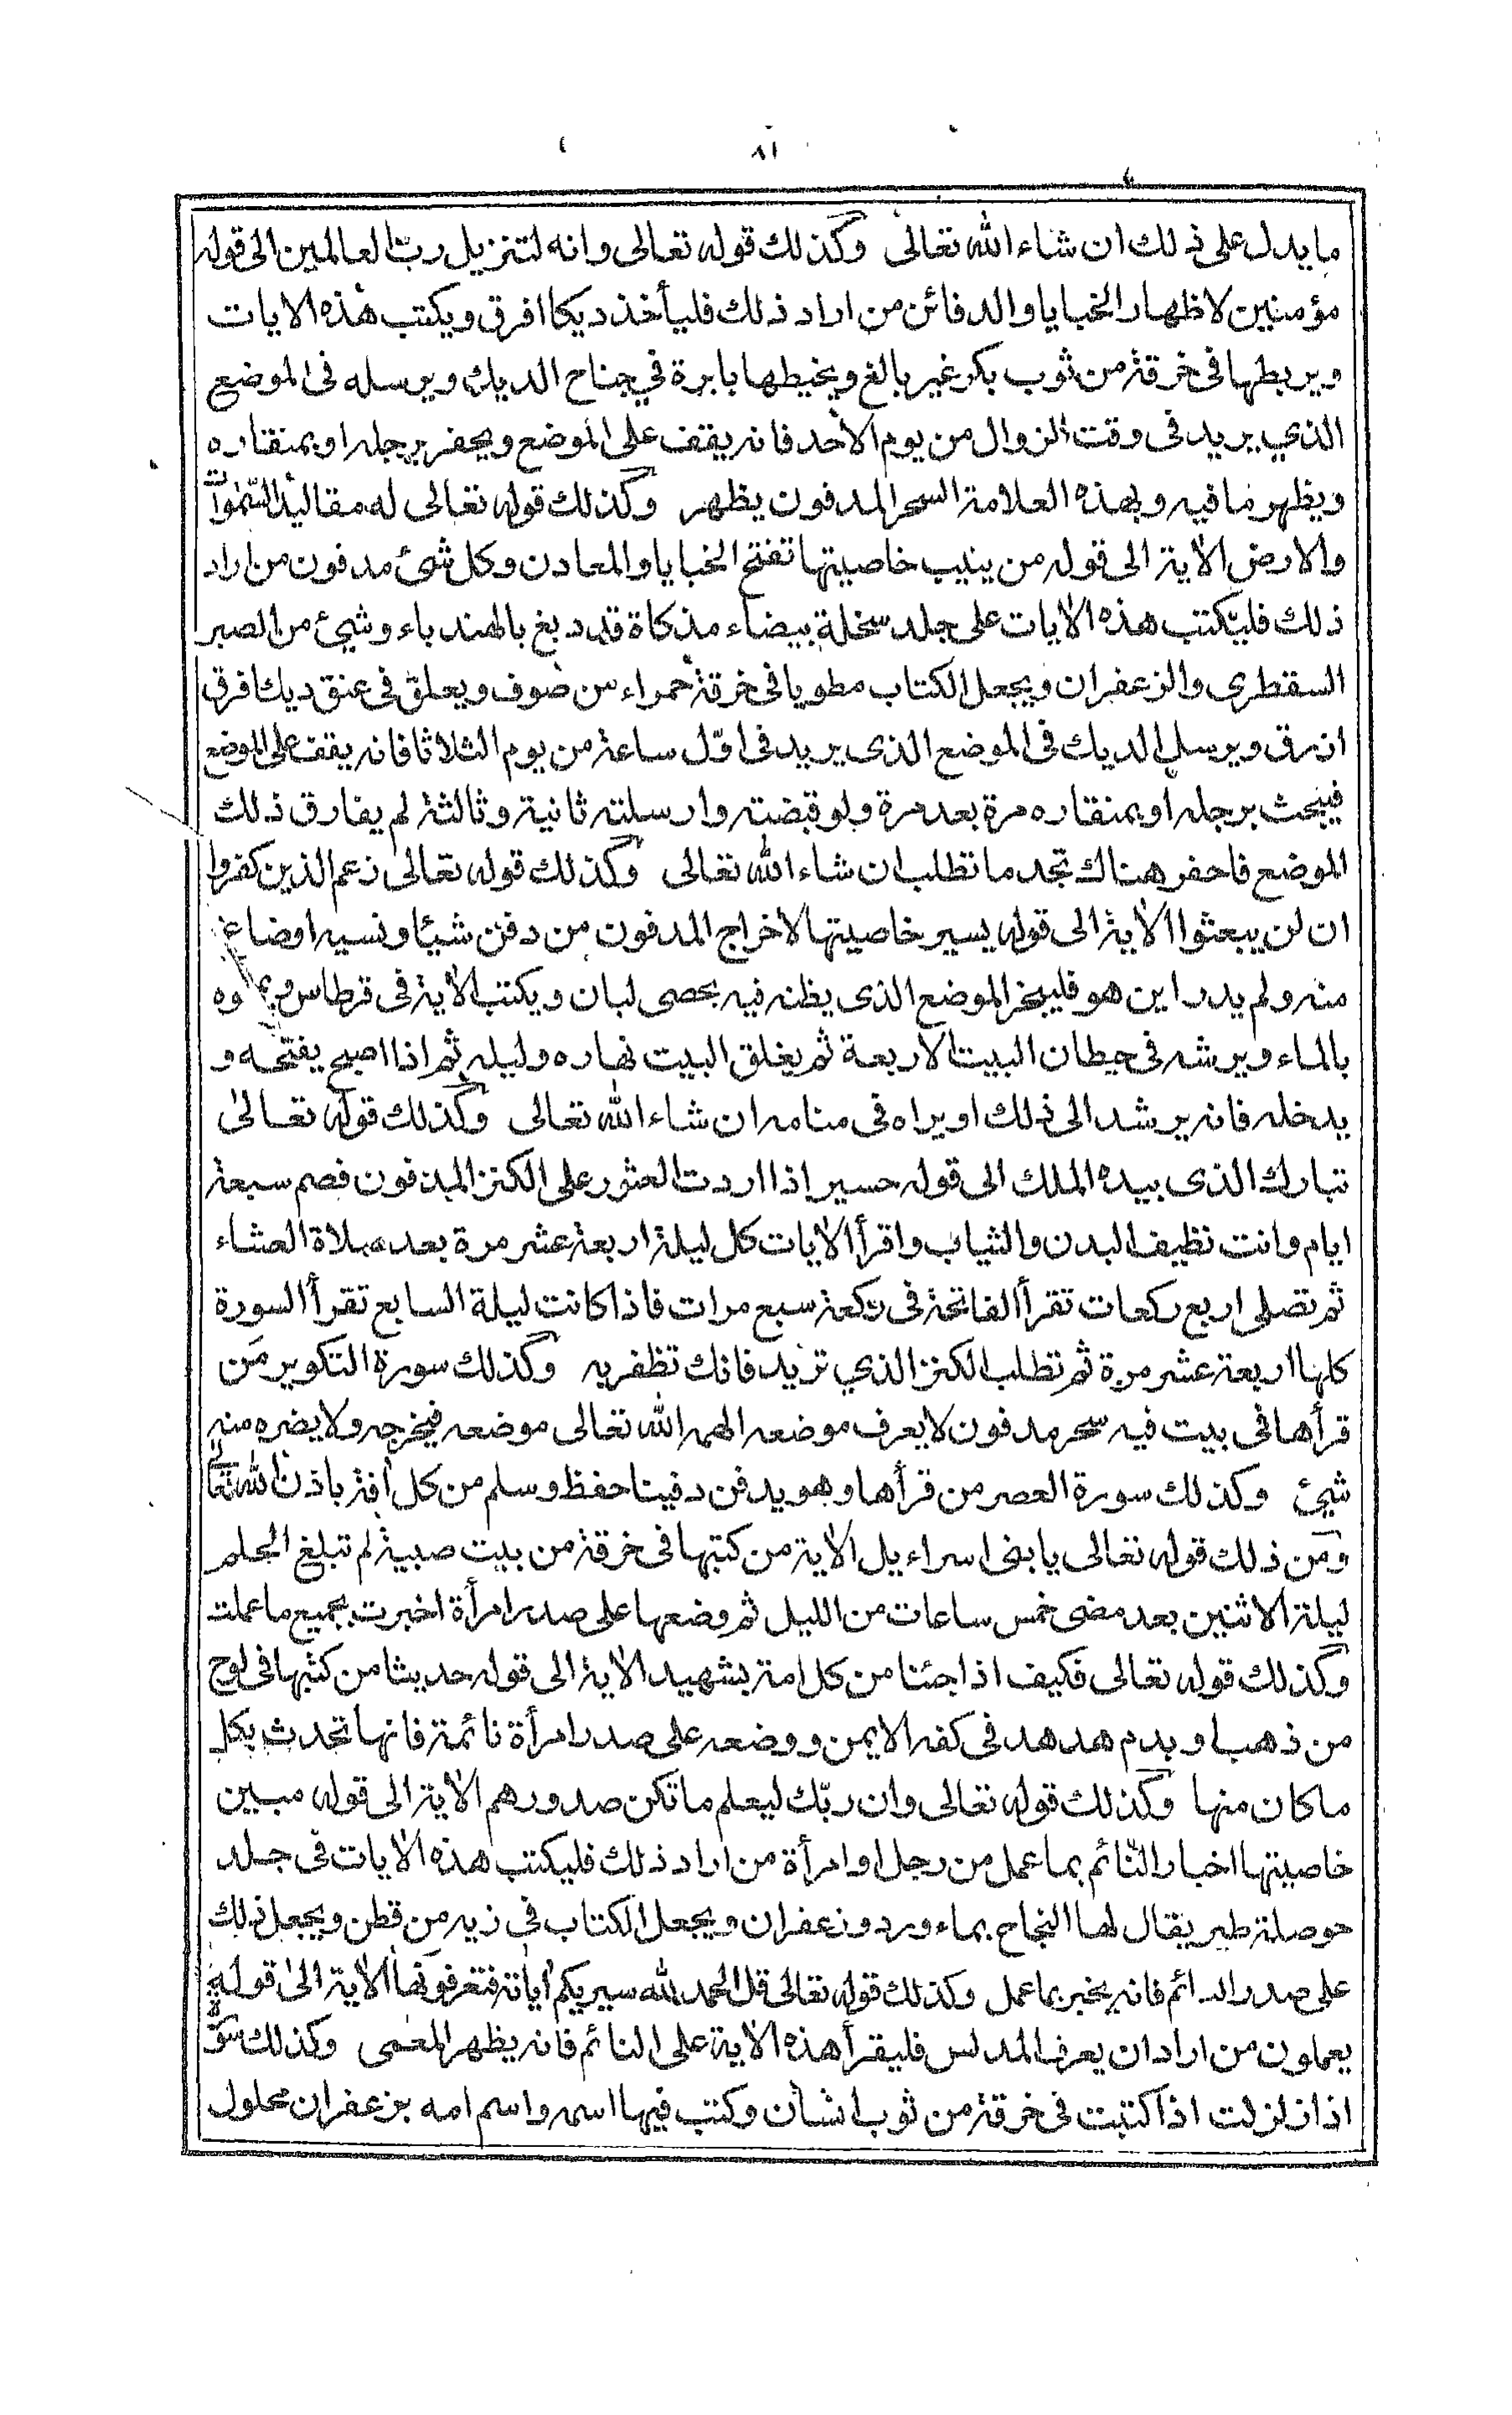 ٨١
ما يدل على ذلك ان شاء الله تعالى وكذلك قوله تعالى وانه لتنزيل ربّ العالمين الى قوله
مؤمنين لاظهار الخبايا والدفائن من اراد ذلك فليأخذ ديكا افرق ويكتب هذه الايات
ويربطها فى خرقة من ثوب بكر غير بالغ ويخيطها بابرة في جناح الديك ويرسله فى الموضع
الذي يريد فى وقت الزوال من يوم الاحد فانه يقف على الموضع ويحفر برجله او بمنقاره
ويظهر ما فيه وبهذه العلامة السحر المدفون يظهر وكذلك قوله تعالى له مقاليد السّمٰوات
والارض الاية الى قوله من ينيب خاصيتها تفتح الخبايا والمعادن وكل شئ مدفون من اراد
ذلك فليكتب هذه الايات على جلد سخلة بيضاء مذكاة قد دبغ بالهندباء وشيئ من الصبر
السقطرى والزعفران ويجعل الكتاب مطويا فى خرقة حمراء من صوف ويعلق فى عنق ديك افرق
ازرق ويرسل الديك فى الموضع الذى يريد فى اوّل ساعة من يوم الثلاثا فانه يقف على الموضع
فيبحث برجله او بمنقاره مرة بعد مرة ولو قبضته وارسلته ثانية وثالثة لم يفارق ذلك
الموضع فاحفر هناك تجد ما تطلب ان شاء الله تعالى وكذلك قوله تعالى زعم الذين كفروا
ان لن يبعثوا الاية الى قوله يسير خاصيتها لاخراج المدفون من دفن شيئا ونسيه او ضاع
منه ولم يدر اين هو فليبخر الموضع الذى يظنه فيه بحصى لبان ويكتب الاية فى قرطاس
بالماء ويرشه فى حيطان البيت الاربعة ثم يغلق البيت نهاره وليله ثم اذا اصبح يفتحه و
يدخله فانه يرشد الى ذلك او يراه فى منامه ان شاء الله تعالى وكذلك قوله تعالىٰ
تبارك الذى بيده الملك الى قوله حسير اذا اردت العثور على الكنز المدفون فصم سبعة
ايام وانت نظيف البدن والثياب واقرأ الايات كل ليلة اربعة عشر مرة بعد صلاة العشاء
ثم تصلى اربع ركعات تقرأ الفاتحة فى ركعة سبع مرات فاذا كانت ليلة السابع تقرأ السورة
كلها اربعة عشر مرة ثم تطلب الكنز الذي تريد فانك تظفر به وكذلك سورة التكوير من
قرأها فى بيت فيه سحر مدفون لا يعرف موضعه الهمه الله تعالى موضعه فيخرجه ولا يضره منه
شيئ وكذلك سورة العصر من قرأها وهو يدفن دفينا حفظ وسلم من كل افة باذن الله تعالى
ومن ذلك قوله تعالى يا بنى اسراءيل الاية من كتبها فى خرقة من بيت صبية لم تبلغ الحلم
ليلة الاثنين بعد مضى خمس ساعات من الليل ثم وضعها على صدر امرأة اخبرت بجميع ما عملت
وكذلك قوله تعالى فكيف اذا جئنا من كل امة بشهيد الاية الى قوله حديثا من كتبها فى لوح
من ذهب او بدم هدهد فى كفه الايمن ووضعه على صدر امرأة نائمة فانها تحدث بكل
ما كان منها وكذلك قوله تعالى وان ربّك ليعلم ما تكن صدورهم الاية الى قوله مبين
خاصيتها اخبار النّائم بما عمل من رجل او امرأة من اراد ذلك فليكتب هذه الايات فى جلد
حوصلة طير يقال لها النجاج بماء ورد وزعفران ويجعل الكتاب فى زيه من قطن ويجعل ذلك
على صدر النائم فانه يخبر بما عمل وكذلك قوله تعالى قل الحمد لله سيريكم اياته فتعرفونها الاية الىٰ قوله
يعملون من اراد ان يعرف المدلس فليقرأ هذه الاية على النائم فانه يظهر المعمى وكذلك سورة
اذا زلزلت اذا كتبت فى خرقة من ثوب انسان وكتب فيها اسمه واسم امه بزعفران محلول